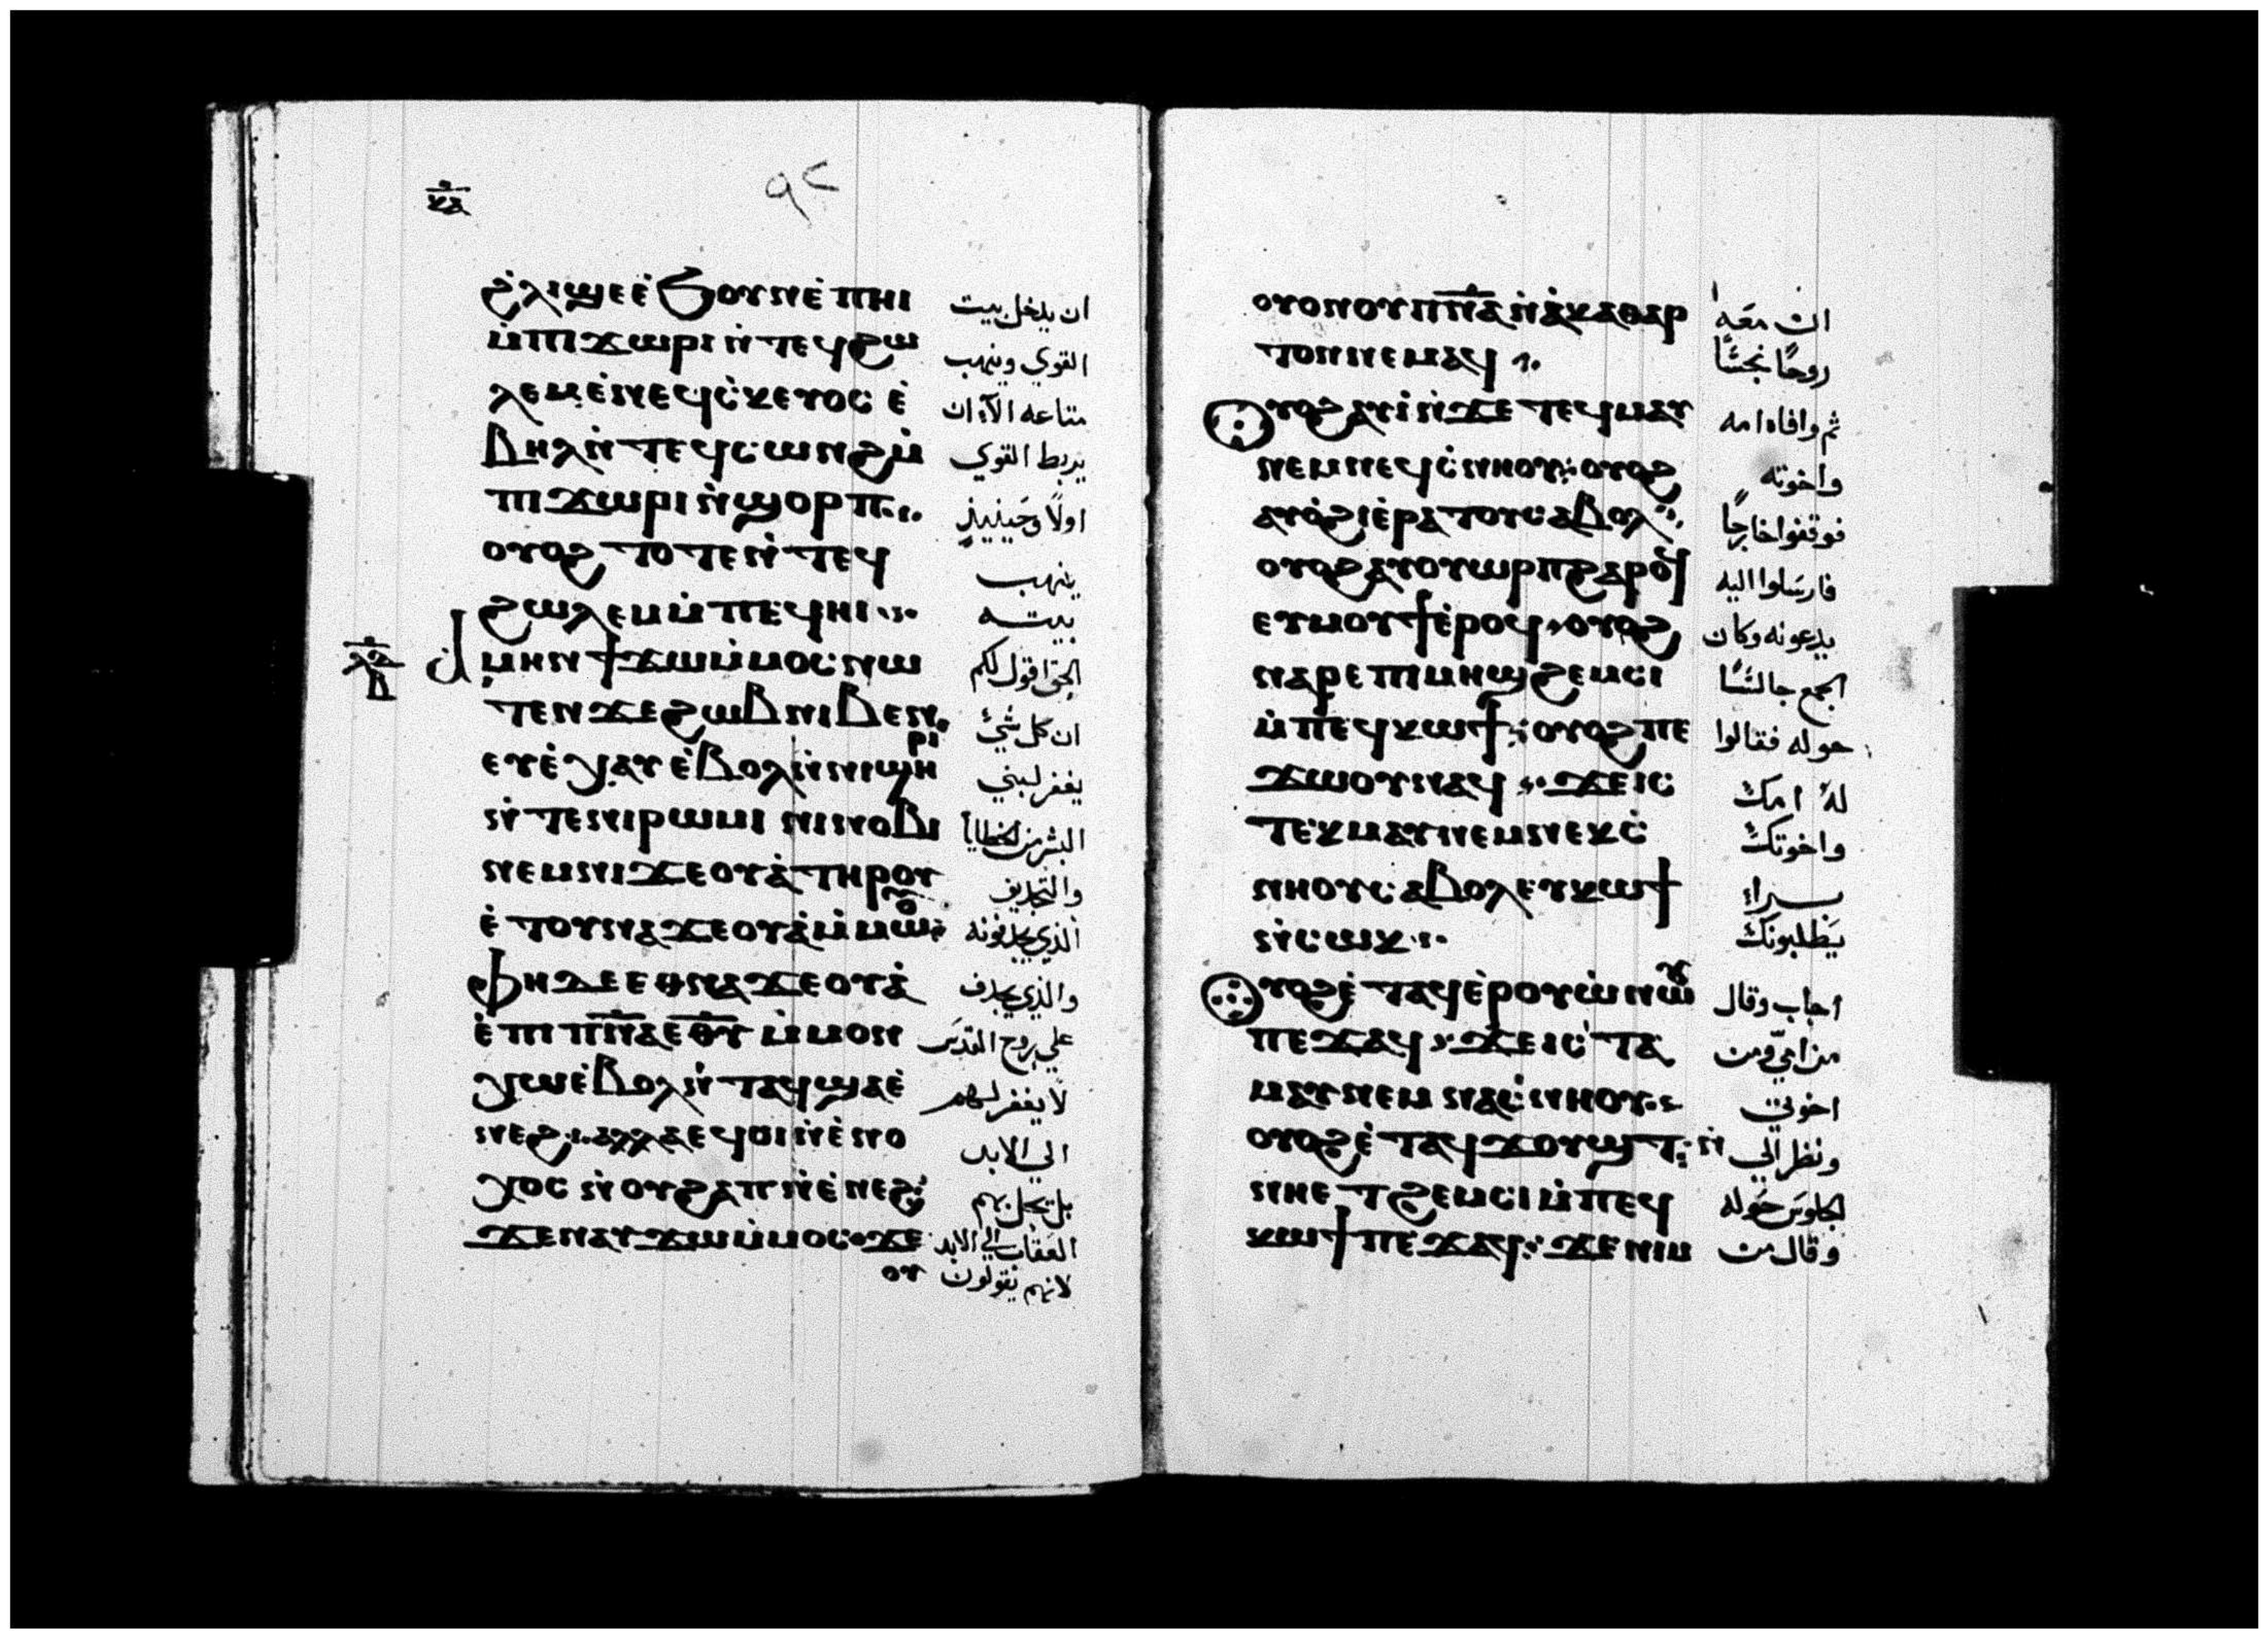 ⲕⲁ
٩٢
ϩⲗⲓ ϣⲉ ⲉ̇ϧⲟⲩⲛ ⲉ̇ⲡⲏⲓ ان يدخل بيت
ⲙ̇ⲡⲓϫⲱⲣⲓ ⲛ̇ⲧⲉϥϩⲱ القوي وينهب
ⲗⲉⲙ ⲉ̇ⲛⲉϥⲥ̇ⲕⲉⲩⲟⲥ ⲉ̇ متاعه الا ان
ⲃⲏⲗ ⲛ̇ⲧⲉϥⲥⲱⲛϩ ⲙ̇ يربط القوي
ⲡⲓϫⲱⲣⲓ ⲛ̇ϣⲟⲣⲡ اولًا وحينيذٍ
ⲟⲩⲟϩ ⲧⲟⲧⲉ ⲛ̇ⲧⲉϥ ينهب
ϩⲱⲗⲉⲙ ⲙ̇ⲡⲉϥⲏⲓ بيته
ⲁⲙⲏⲛ ϯϫⲱ ⲙ̇ⲙⲟⲥ ⲛⲱ الحق اقول لكم
ⲧⲉⲛ ϫⲉ ϩⲱⲃ ⲛⲓⲃⲉⲛ ان كل شيٍ
ⲉⲩⲉ̇ⲭⲁⲩ ⲉ̇ⲃⲟⲗ ⲛ̇ⲛⲓϣⲏⲣⲓ يغفر لبني
ⲛ̇ⲧⲉ ⲛⲓⲣⲱⲙⲓ ⲛⲓⲛⲟⲃⲓ البشر من الخطايا
ⲛⲉⲙ ⲛⲓϫⲉⲟⲩⲁ̇ ⲧⲏⲣⲟⲩ والتجاديف
ⲉ̇ⲧⲟⲩⲛⲁϫⲉⲟⲩⲁ̇ ⲙ̇ⲙⲱⲟⲩ الذي يجدفونه
ⲫⲏ ⲇⲉ ⲉⲑⲛⲁϫⲉⲟⲩⲁ̇ والذي يجدف
ⲉ̇ⲡⲓⲡ̅ⲛ̅ⲁ̅ ⲉ̅ⲑ̅ⲩ̅ ⲙ̇ⲙⲟⲛ علي روح القدس
ⲭⲱ ⲉ̇ⲃⲟⲗ ⲛ̇ⲧⲁϥ ϣⲁ ⲉ̇ لا يغفر لهم
ⲛⲉϩ ⲁⲗⲗⲁ ⲉϥⲟⲓ ⲛ̇ⲉ̇ⲛⲟ الي الابد
ⲭⲟⲥ ⲛ̇ⲟⲩϩⲁⲡ ⲛ̇ⲉ̇ⲛⲉϩ بل يحل بهم
ϫⲉ ⲛⲁⲩϫⲱ ⲙ̇ⲙⲟⲥ ϫⲉ العقاب الي الابد
ⲟⲩ لانهم يقولون
ⲟⲩⲟⲛ ⲟⲩⲡ̅ⲛ̅ⲁ̅ ⲛ̇ⲁ̇ⲕⲁⲑⲁⲣ ان معه
ⲧⲟⲛ ⲛⲉⲙⲁϥ روحًا نجسًا
ⲟⲩⲟϩ ⲁⲩⲓ̇ ⲛ̇ϫⲉ ⲧⲉϥⲙⲁⲩ ثم وافاه امه
ⲛⲉⲙ ⲛⲉϥⲥ̇ⲛⲏⲟⲩ ⲟⲩⲟϩ واخوته
ⲁⲩⲟ̇ϩⲓ ⲉ̇ⲣⲁⲧⲟⲩ ⲥⲁⲃⲟⲗ فوقفوا خارجًا
ⲟⲩⲟϩ ⲁⲩⲟⲩⲱⲣⲡ ϩⲁⲣⲟϥ فارسلوا اليه
ⲉⲩⲙⲟⲩϯ ⲉ̇ⲣⲟϥ ⲟⲩⲟϩ يدعونه وكان
ⲛⲁⲣⲉ ⲡⲓⲙⲏϣ ϩⲉⲙⲥⲓ الجمع جالسًا
ⲙ̇ⲡⲉϥⲕⲱϯ ⲟⲩⲟϩ ⲡⲉ حوله فقالوا
ϫⲱⲟⲩ ⲛⲁϥ ϫⲉ ⲓⲥ لهُ امك
ⲧⲉⲕⲙⲁⲩ ⲛⲉⲙ ⲛⲉⲕⲥ̇ واخوتك
ⲛⲏⲟⲩ ⲥⲁⲃⲟⲗ ⲉⲩⲕⲱϯ براء
ⲛ̇ⲥⲱⲕ يطلبونك
ⲟⲩⲟϩ ⲉ̇ⲧⲁϥⲉ̇ⲣⲟⲩⲱ̇ ⲛⲱⲟⲩ اجاب وقال
ⲡⲉϫⲁϥ ϫⲉ ⲓⲥ ⲧⲁ من امي ومن
ⲙⲁⲩ ⲛⲉⲙ ⲛⲁⲥ̇ⲛⲏⲟⲩ اخوتي
ⲟⲩⲟϩ ⲉ̇ⲧⲁϥϫⲟⲩϣⲧ ⲛ̇ ونظر الي
ⲛⲏⲉⲧϩⲉⲙⲥⲓ ⲙ̇ⲡⲉϥ الجلوس حوله
ⲕⲱϯ ⲡⲉϫⲁϥ ϫⲉ ⲛⲓⲙ وقال من